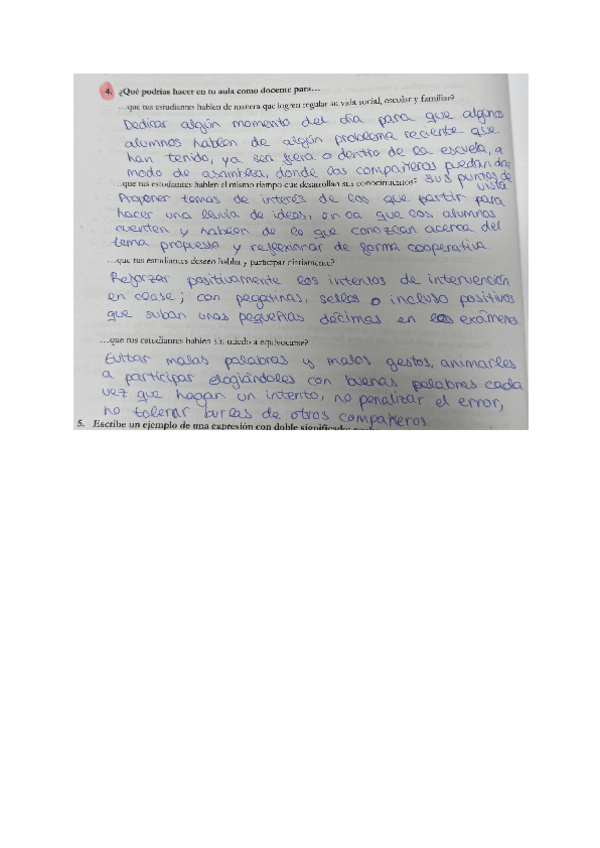 4. ¿Qué podrías hacer en tu aula como docente para…
…que tus estudiantes hablen de manera que logren regular su vida social, escolar y familiar?
Dedicar algún momento del día para que algunos
alumnos hablen de algún problema reciente que
han tenido, ya sea fuera o dentro de la escuela, a
modo de asamblea, donde los compañeros puedan dar
sus puntos de vista
…que tus estudiantes hablen al mismo tiempo que desarrollan sus conocimientos?
Proponer temas de interés de los que partir para
hacer una lluvia de ideas, en la que los alumnos
cuenten y hablen de lo que conozcan acerca del
tema propuesto y reflexionar de forma cooperativa.
…que tus estudiantes deseen hablar y participar oralmente?
Reforzar positivamente los intentos de intervención
en clase; con pegatinas, sellos o incluso positivos
que suban unas pequeñas décimas en los exámenes.
…que tus estudiantes hablen sin miedo a equivocarse?
Evitar malas palabras y malos gestos, animarles
a participar elogiándoles con buenas palabras cada
vez que hagan un intento, no penalizar el error,
no tolerar burlas de otros compañeros.
5. Escribe un ejemplo de una expresión con doble significado